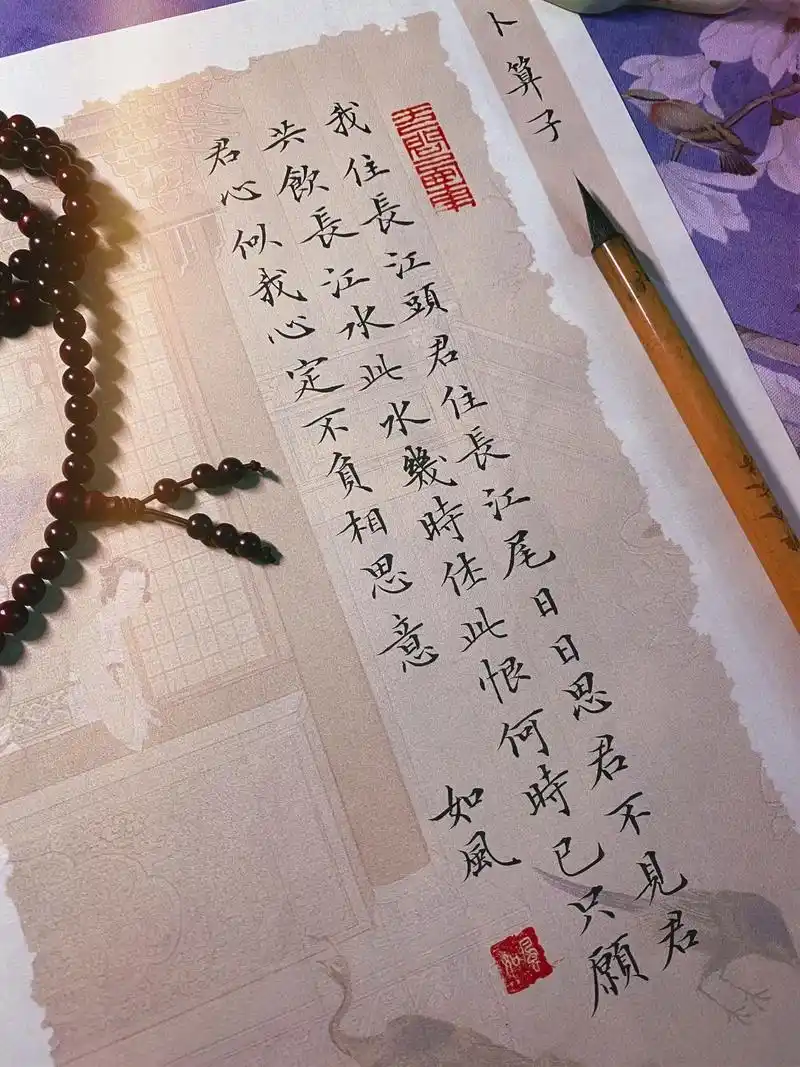 卜算子
我住長江頭君住長江尾日日思君不見君
共飲長江水此水幾時休此恨何時已只願
君心似我心定不負相思意
如風
如風